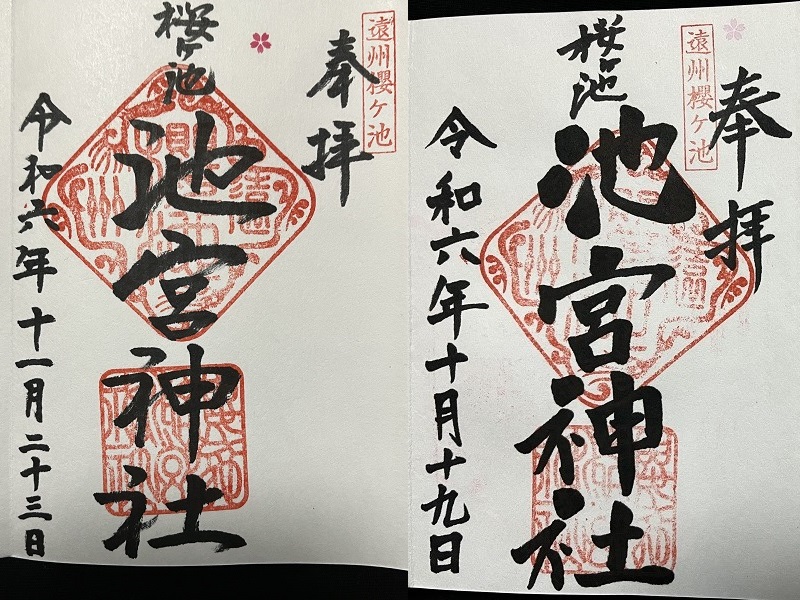 遠州櫻ケ池
奉拝
桜ヶ池
池宮神社
令和六年十一月二十三日
遠州櫻ケ池
奉拝
桜ヶ池
池宮神社
令和六年十月十九日